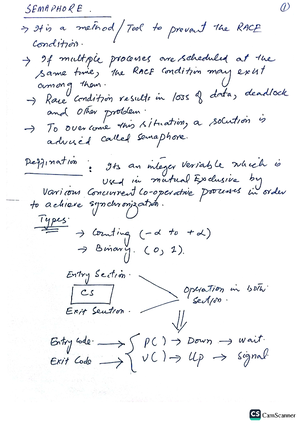 SEMAPHORE.
①
→ It is a method / Tool to prevent the RACE
Condition.
→ If multiple processes are scheduled at the
same time, the RACE Condition may exist
among them.
→ Race Condition results in loss of data, deadlock
and other problem.
→ To overcome this situation, a solution is
adviced called semaphore.
Deffination : Its an integer variable which is
used in mutual Exclusive by
various Concurrent Co-operative processes in order
to achieve synchronization.
Types
→ Counting (-α to +α)
→ Binary. (0, 1).
Entry Section.
CS
Exit Section.
Operation in both
section.
Entry Code → P( ) → Down → wait.
Exit Code → V( ) → Up → signal
CS CamScanner